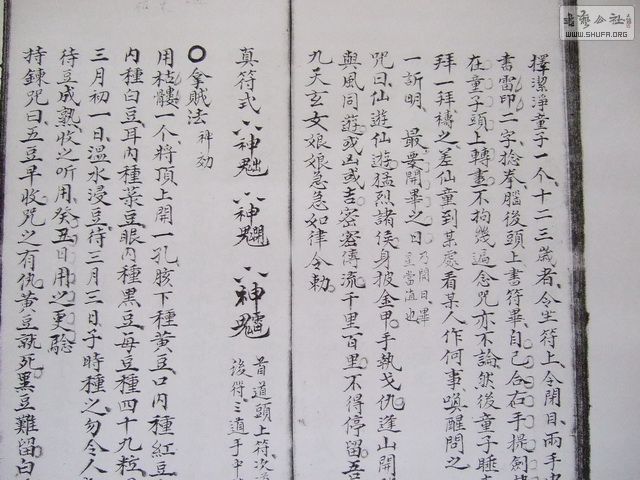 擇潔淨童子一个、十二三歲者、令坐符上、令閉目、兩手
書雷印二字、捻拳腦後頭上書符畢、自己合右手提劍
在童子頭上轉畫、不拘幾遍、念咒亦不論、然後童子睡
拜一拜禱之、差仙童到某處看某人作何事、喚醒問之
一訢明、最要開畢之日
乃閉日畢
直當值也
咒曰、仙遊仙遊、猛烈諸侯、身披金甲、手執戈仇、逢山開
與風同遊、或凶或吉、密密傳流、千里百里、不得停留、吾
九天玄女娘娘急急如律令勅
真符式
首道頭上符、次
後得三道于中
拿賊法
神効
用枯髏一个、將頂上開一孔、腦下種黃豆、口內種紅豆
內種白豆、耳內種菉豆、眼內種黑豆、每豆種四十九粒
三月初一日、溫水浸豆、待三月三日子時種之、勿令人
待豆成熟、收之听用、癸丑日用之更驗
持鍊咒曰、五豆早收、咒之有仇、黃豆就死、黑豆難留、白
WWW.SHUFA.ORG